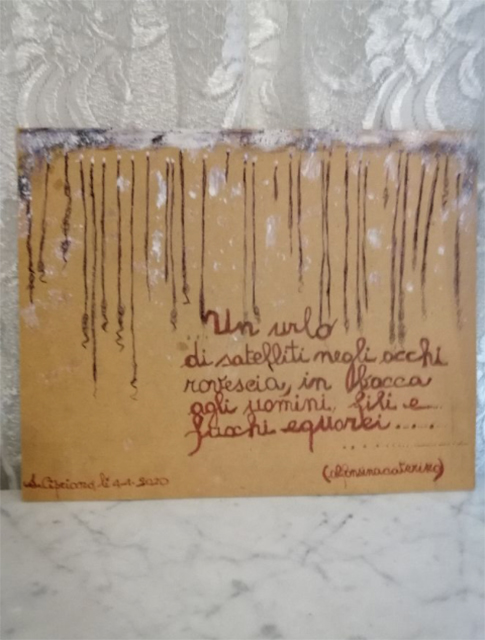 Un urlo
di satelliti negli occhi
rovescia, in bocca
agli uomini, fili e
fuochi equorei.....
S. Cipriano, lì 4.4.2020